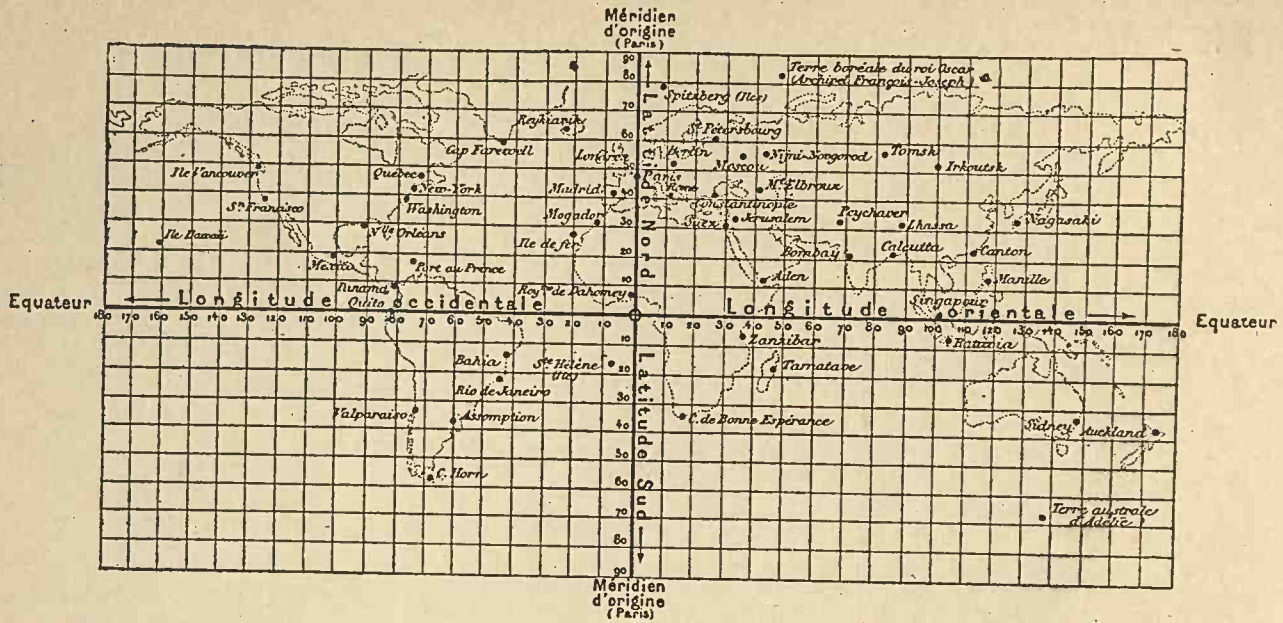 Méridien
d'origine
(Paris)
90
80
70
60
50
40
30
20
10
Latitude Nord
Terre boréale du roi Oscar
(Archipel François-Joseph)
Spitzberg (Iles)
Reykiavik
St Pétersbourg
Cap Farewell
Londres
Berlin
Moscou
Nijni-Novgorod
Tomsk
Irkoutsk
Ile Vancouver
Québec
Paris
New-York
Madrid
Rome
Mt Elbrouz
Constantinople
Sn Francisco
Washington
Mogador
Suez
Jerusalem
Peychaver
Lhassa
Nagasaki
Ile Hawaii
Nlle Orléans
Ile de fer
Bombay
Calcutta
Canton
Mexico
Port au Prince
Aden
Manille
Panama
Royme de Dahomey
Singapour
Quito
Equateur
Longitude occidentale
Longitude orientale
Equateur
180 170 160 150 140 130 120 110 100 90 80 70 60 50 40 30 20 10
10 20 30 40 50 60 70 80 90 100 110 120 130 140 150 160 170 180
Zanzibar
Batavia
Bahia
Ste Hélène
(Ile)
Tamatave
Rio de Janeiro
Valparaiso
Assomption
C. de Bonne Espérance
Sidney
Auckland
C. Horn
Terre australe
d'Adélie
10
20
30
40
50
60
70
80
90
Latitude Sud
Méridien
d'origine
(Paris)